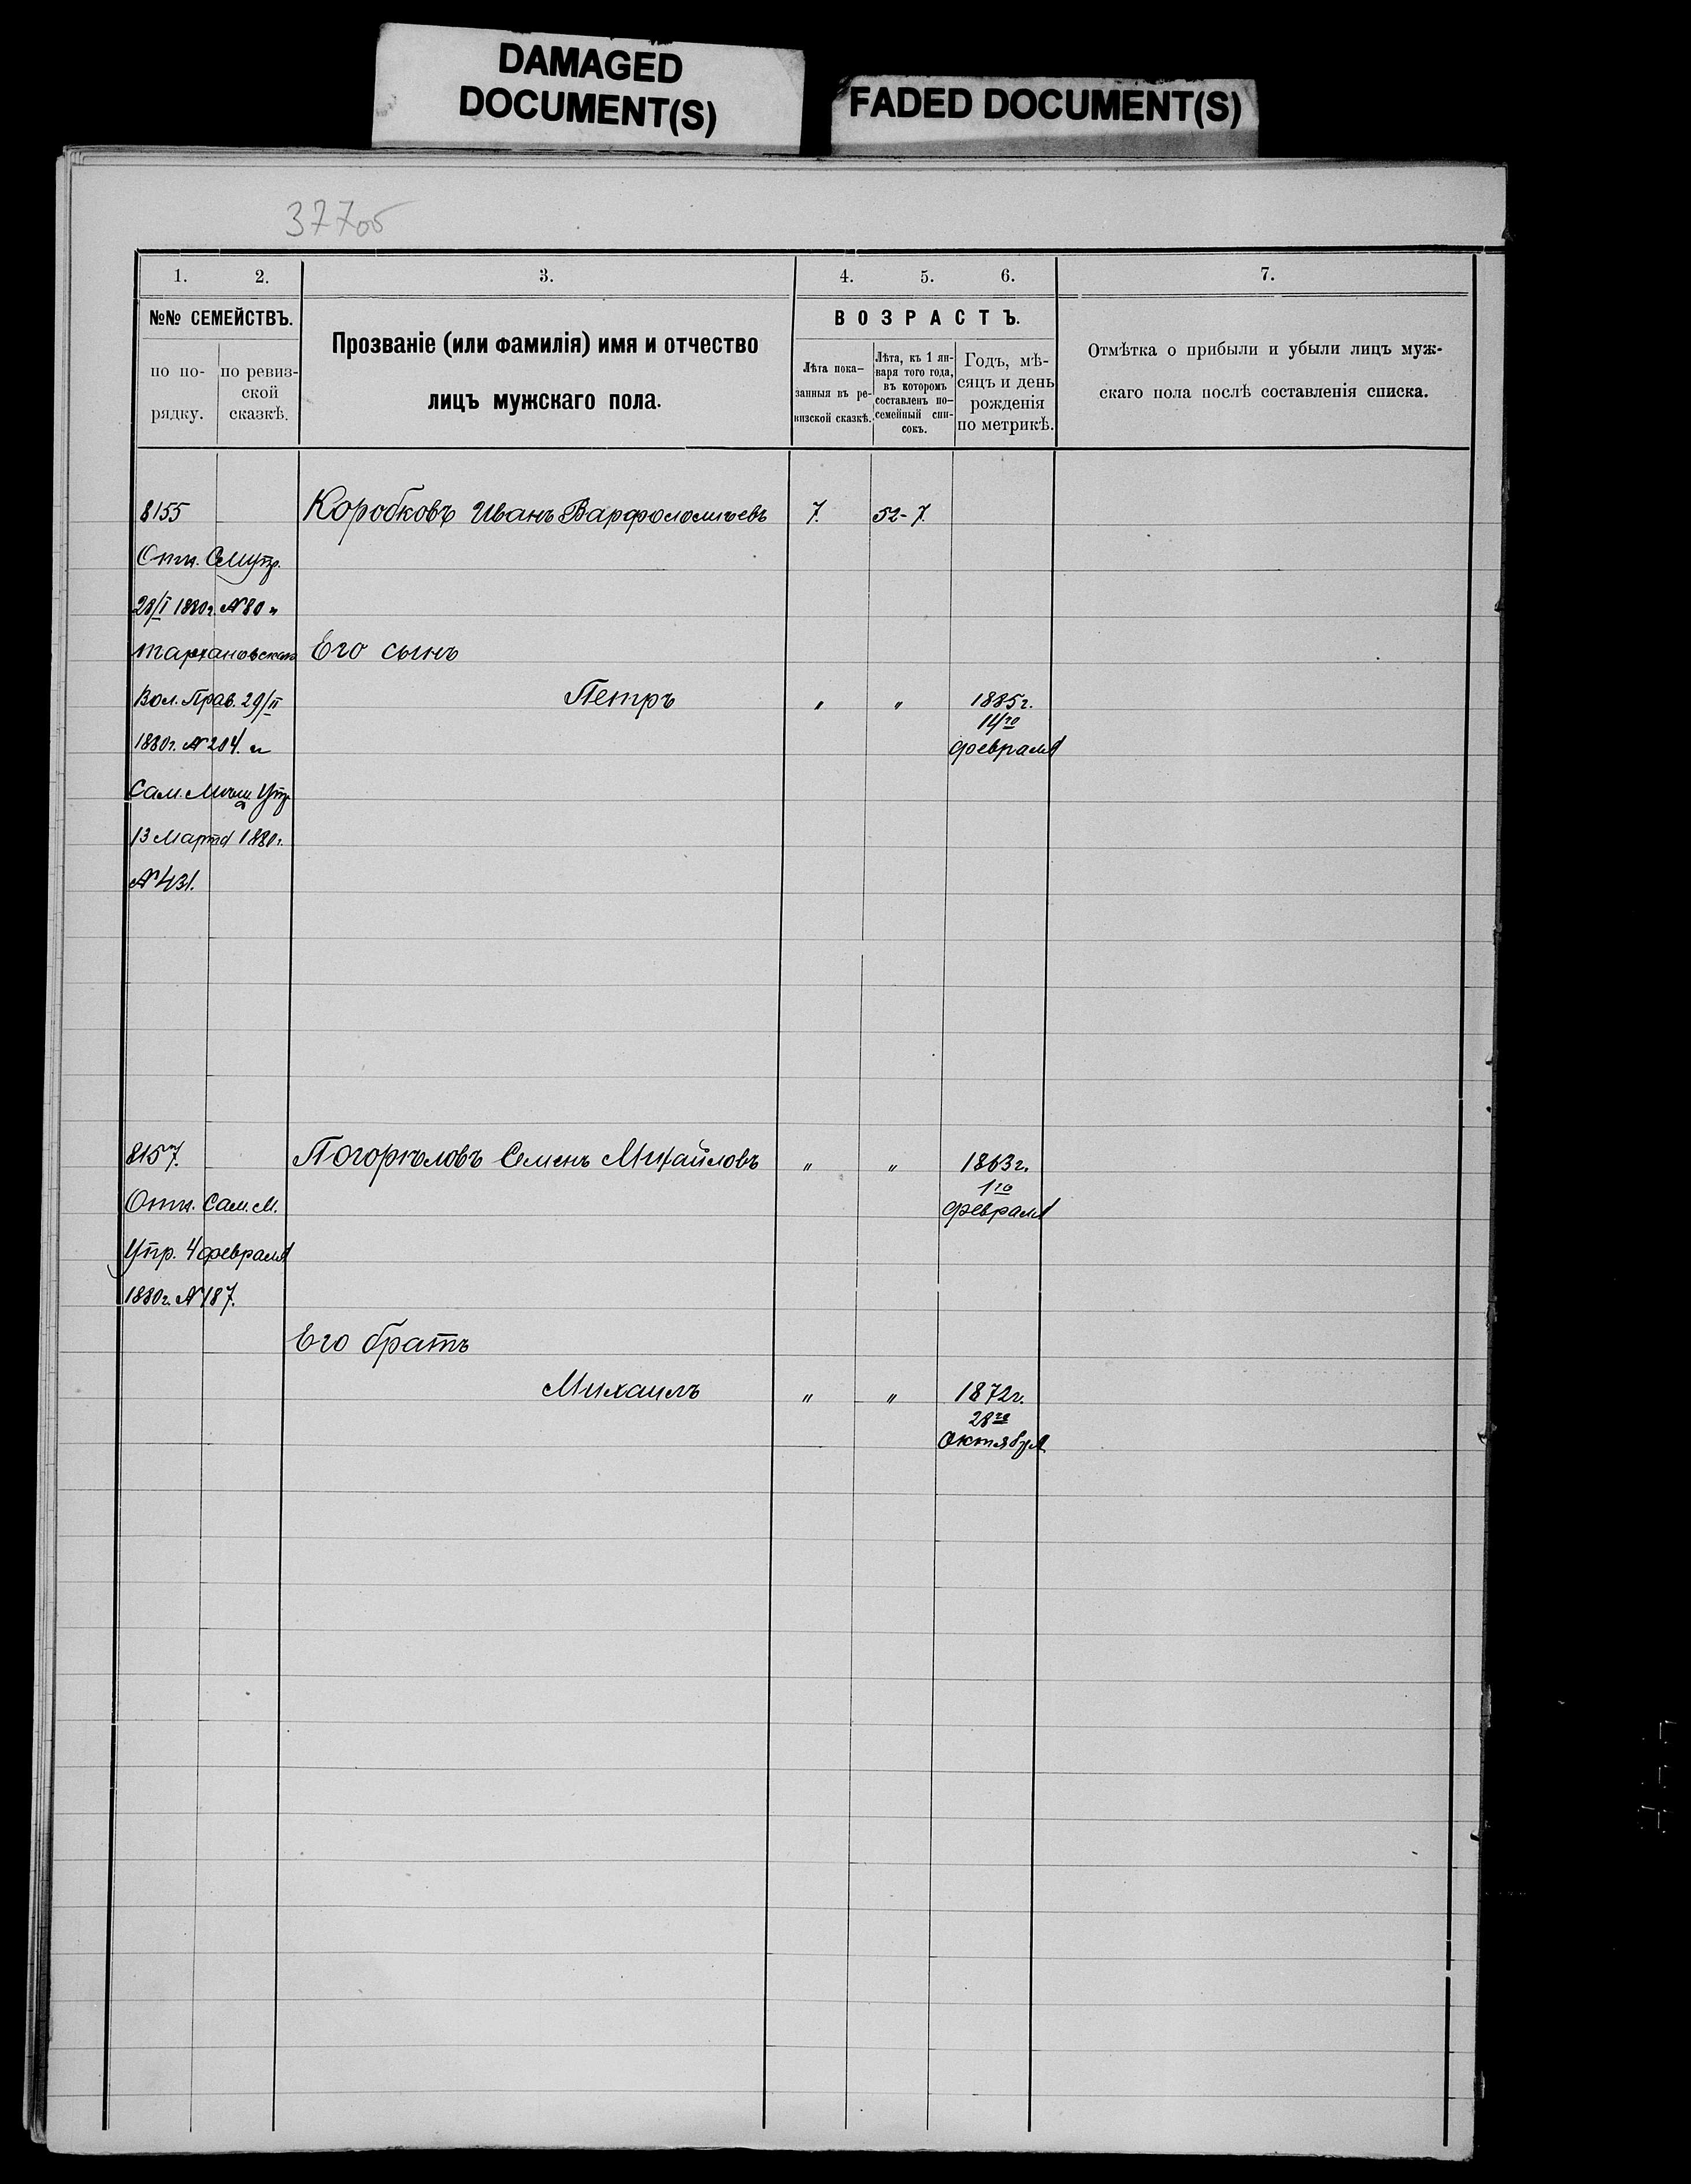 DAMAGED
DOCUMENT(S)
FADED DOCUMENT(S)
377об
1. 2. 3. 4. 5. 6. 7.
№№ СЕМЕЙСТВЪ.
по по-
рядку.
по ревиз-
ской
сказкѣ.
Прозваніе (или фамилія) имя и отчество
лицъ мужскаго пола.
ВОЗРАСТЪ.
Лѣта пока-
занныя въ ре-
визской сказкѣ.
Лѣта, къ 1 ян-
варя того года,
въ которомъ
составленъ по-
семейный спи-
сокъ.
Годъ, мѣ-
сяцъ и день
рожденія
по метрикѣ.
Отмѣтка о прибыли и убыли лицъ муж-
скаго пола послѣ составленія списка.
8155 Коробковъ Иванъ Варфоломѣевъ 7. 52-7.
Отн.
28/I 1880г. №80 и
Тархановскаго Его сынъ
Вол. Прав. 29/II Петръ " " 1885г.
14го
1880г. №204. и февраля
Сам. Мѣщ. Упр.
13 Марта 1880г.
№431.
8157. Погорѣловъ Семенъ Михайловъ " " 1863г.
1го
Отн. Сам. М. февраля
Упр. 4 февраля
1880г. №187.
Его братъ
Михаилъ " " 1872г.
28го
Октября